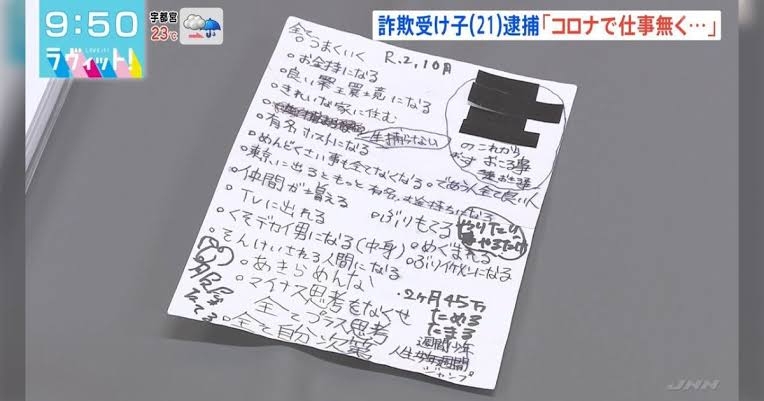 9:50
宇都宮
23℃
LOVE it!
ラヴィット!
詐欺受け子(21)逮捕「コロナで仕事無く…」
R.2,10月
全て
うまくいく
お金持になる
良い環境になる
きれいな家に住む
一生捕らない
有名ホストになる
のこれから
おこる事
めんどくさい事も全てなくなる
であう人全て良い人
東京に出るともっと有名、お金持ちになる
仲間が増える
TVに出れる
ぶりもてる
やりたい
やるだけ
くそデカイ男になる(中身)
めぐまれる
そんけいされる人間になる
ぶりイケメンになる
あきらめんな
マイナス思考をなくせ
2ヶ月45万
ためる
たまる
全てプラス思考
全て自分次第
週間少年
人生
週間
ジャンプ
JNN